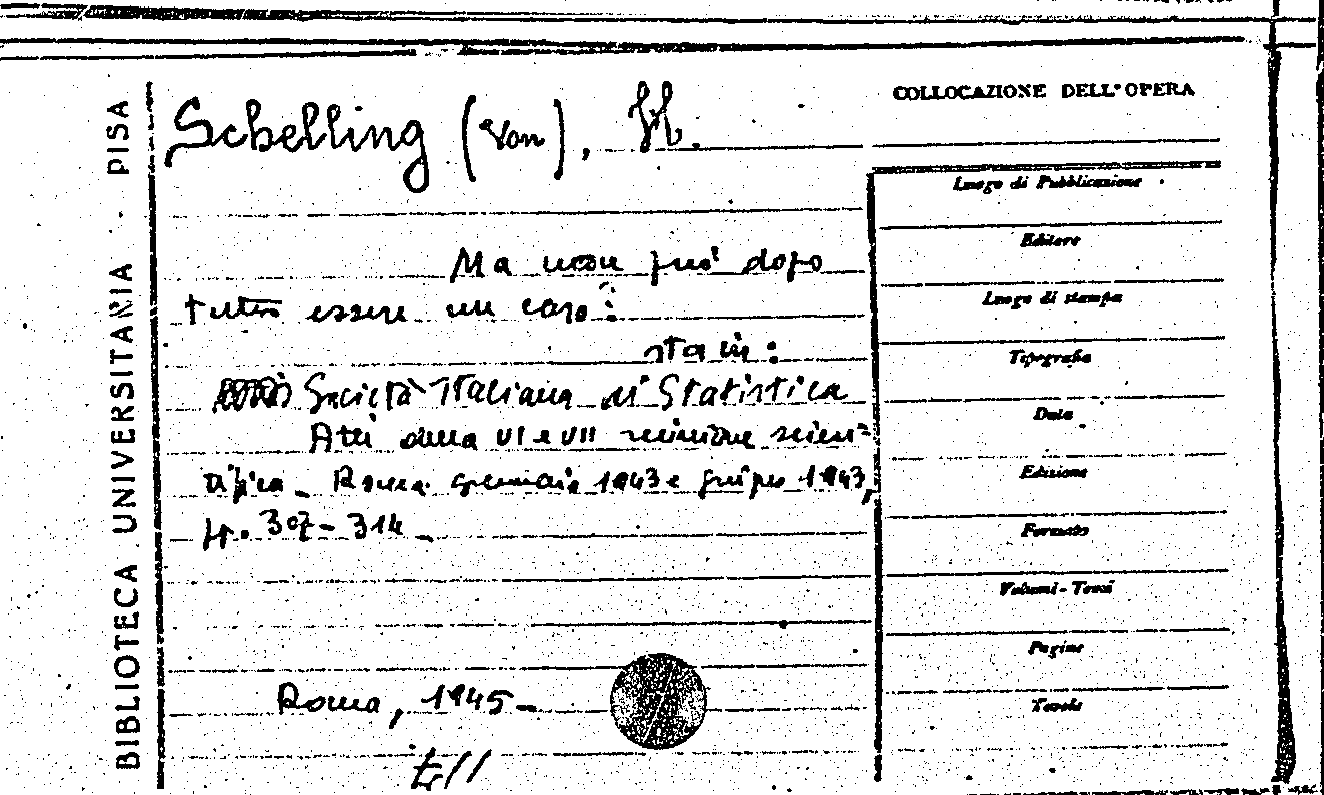 BIBLIOTECA UNIVERSITARIA - PISA
Schelling (von), H.
COLLOCAZIONE DELL'OPERA
Luogo di Pubblicazione
Editore
Luogo di stampa
Tipografia
Data
Edizione
Formato
Volumi - Tomi
Pagine
Tavole
Ma non può dopo
tutto essere un caso?
sta in:
Società Italiana di Statistica
Atti della VI e VII riunione scien=
tifica - Roma gennaio 1943 e giugno 1943,
pp. 307-314 -
Roma, 1945 -